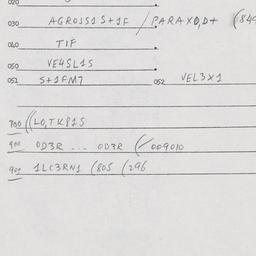 020
030 AGROJS1S+1F / PARAXO,D+ (840
040 TIF
050 VE4SL1S
051 S+1FM7 052 VEL3X1
700 ((LO,TKP1S
900 OD3R ... OD3R (/009010
909 1LC3RN1 (805 (296